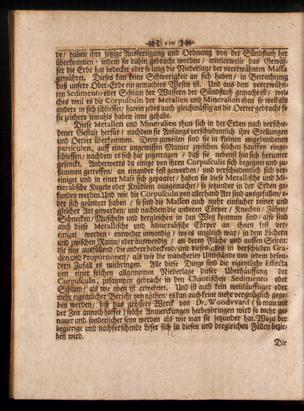 110
de/ haben ihre jetzige Ausfertigung und Ordnung von der Sündfluth her
überkommen/ indem sie dahin gebracht worden/ mittlerweile das Gewäs-
ser die Erde hat bedeckt oder so lang die Niederlage der vorerwähnten Massa
gewähret. Dieses kan keine Schwerigkeit an sich haben/ in Betrachtung
daß unsere Ober-Erde ein gemachtes Wesen ist. Und eras dem vorerwähn-
ten Sedimento oder Schlam der Wasser der Sündfluth gemachet/ wel-
ches weil es die Corpuscula der Metallen und Mineralien eben so woll als
andere in sich schliesset/ hatten jedes auch gleichmäßig an die Oerter gebracht so
sie jetzhero jemahls haben inne gehabt.
Diese Metallen und Mineralien thun sich in der Erden nach verschie-
dener Gestalt herfür/ nachdem sie Anfangs verschiedentlich ihre Stellungen
und Oerter überkommen. Denn zuweilen sie in kleinen ungebundenen
particulen, auff einer ungewissen Manier zwischen solchen hauffen einge-
schlossen/ nachdem es sich hat zugetragen/ daß sie nebenst ihn sich herunter
gesenckt. Anderwerts da einige von ihren Corpusculn sich begegnet und zu-
sammen getroffen/ an einander fest geworden/ und verschiedentlich sich ver-
einiget und in eine Maß sich gepaaret/ haben sie diese Metallische und Mi-
neralische Kugeln oder Knöblein ausgemachet/ so jetzunder in der Erden ge-
funden werden. Und wie die Corpusculn von allerhand Art sind ausgefallen/ o-
der sich geändert haben/ so sind die Massen auch mehr einfacher reiner und
gleicher Art geworden/ und nachdem die anderen Cörper/ Knochen/ Zähne/
Schnecken/ Muscheln und dergleichen in den Weg kommen sind/ also sind
auch diese Metallische und Mineralische Cörper an ihnen fest ver-
einiget worden/ entweder inwendig/ wo es ungleich war/ in den Löchern
und zwischen Raum/ oder auswendig/ an deren Fläche und aussen Seiten:
die eine ausfüllend/ die andere bedeckend; und dieses alles in verschieden Gra-
den und Proportionen/ als wie die mancherley Umstände von jeden beson-
dern Zufall es mitbringen. Alle diese Dinge sind die eigentliche Effecta
von einer solchen allgemeinen Niederlage dieser Uberhäuffung der
Corpusculn, zusammen gebracht in den Chaotischen Sedimento oder
Schlam/ als wie oben ist erwehnet. Und ist auch kein weitläufftiger oder
mehr eigentlicher Bericht von nöthen/ es kan auch keine mehr vergnüglich gege-
ben werden/ biß das grössere Werck von Dr. Woodward (so man mit
der Zeit annoch hoffet) solche Anmerckungen herbeybringen wird so mehr ge-
nauer und sonderlicher seyn werden als wie man sie jetzunder hat. Wozu der
begierige und nachforschende Leser sich in diesen und dergleichen Fällen bezie-
hen wird.
Die